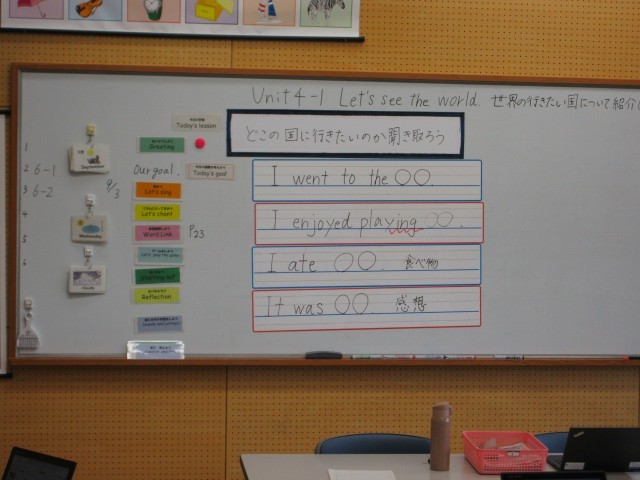 Unit 4-1 Let's see the world. 世界の行きたい国について紹介
Today's lesson
どこの国に行きたいのか聞き取ろう
Greeting
Our goal.
Today's goal
1
2 6-1
3 6-2
4
5
6
September
9/3
Wednesday
cloudy
Let's sing
Let's chant
Word Link
P23
Let's play the game
Reflection
I went to the ○○.
I enjoyed playing ○○.
I ate ○○. 食べ物
It was ○○. 感想